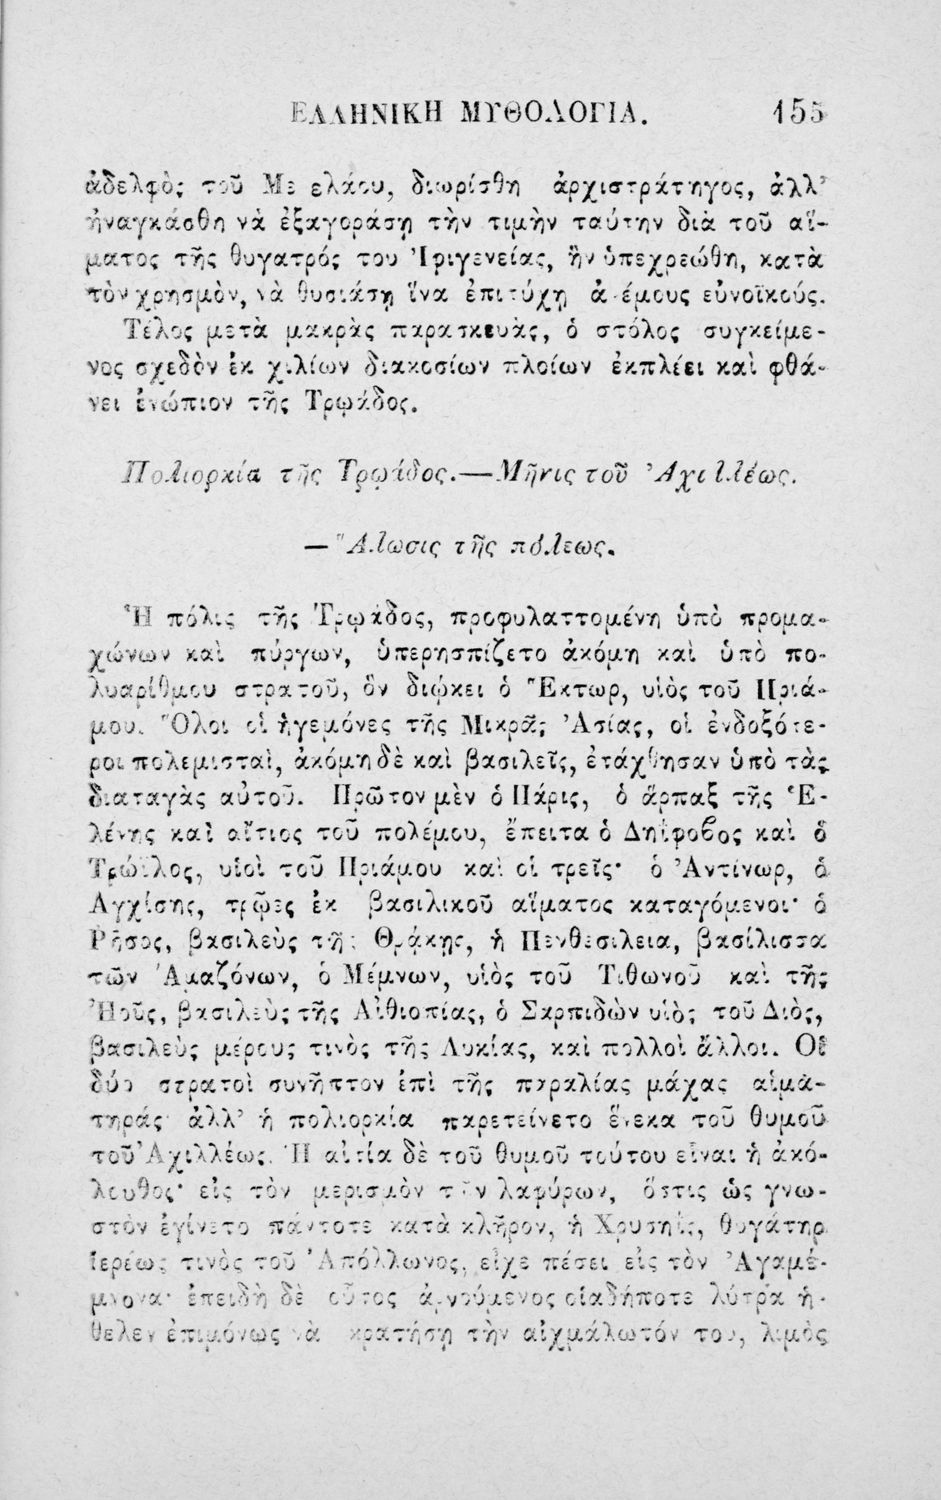 ΕΛΛΗΝΙΚΗ ΜΥΘΟΛΟΓΙΑ. 155
ἀδελφὸς τοῦ Μενελάου, διωρίσθη ἀρχιστράτηγος, ἀλλ'
ἠναγκάσθη νὰ ἐξαγοράσῃ τὴν τιμὴν ταύτην διὰ τοῦ αἵ-
ματος τῆς θυγατρός του Ἰφιγενείας, ἣν ὑπεχρεώθη, κατὰ
τὸν χρησμὸν, νὰ θυσιάσῃ ἵνα ἐπιτύχῃ ἀνέμους εὐνοϊκούς.
Τέλος μετὰ μακρὰς παρασκευὰς, ὁ στόλος συγκείμε-
νος σχεδὸν ἐκ χιλίων διακοσίων πλοίων ἐκπλέει καὶ φθά-
νει ἐνώπιον τῆς Τρῳάδος.
Πολιορκία τῆς Τρῳάδος.—Μῆνις τοῦ Ἀχιλλέως.
— Ἅλωσις τῆς πόλεως.
Ἡ πόλις τῆς Τρῳάδος, προφυλαττομένη ὑπὸ προμα-
χώνων καὶ πύργων, ὑπερησπίζετο ἀκόμη καὶ ὑπὸ πο-
λυαρίθμου στρατοῦ, ὃν διῴκει ὁ Ἕκτωρ, υἱὸς τοῦ Πριά-
μου. Ὅλοι οἱ ἡγεμόνες τῆς Μικρᾶς Ἀσίας, οἱ ἐνδοξότε-
ροι πολεμισταὶ, ἀκόμη δὲ καὶ βασιλεῖς, ἐτάχθησαν ὑπὸ τὰς
διαταγὰς αὐτοῦ. Πρῶτον μὲν ὁ Πάρις, ὁ ἅρπαξ τῆς Ἑ-
λένης καὶ αἴτιος τοῦ πολέμου, ἔπειτα ὁ Δηΐφοβος καὶ ὁ
Τρώϊλος, υἱοὶ τοῦ Πριάμου καὶ οἱ τρεῖς· ὁ Ἀντίνωρ, ὁ
Αγχίσης, τρῶες ἐκ βασιλικοῦ αἵματος καταγόμενοι· ὁ
Ῥῆσος, βασιλεὺς τῆς Θρᾴκης, ἡ Πενθεσιλεια, βασίλισσα
τῶν Ἀμαζόνων, ὁ Μέμνων, υἱὸς τοῦ Τιθωνοῦ καὶ τῆς
Ἠοῦς, βασιλεὺς τῆς Αἰθιοπίας, ὁ Σαρπιδὼν υἱὸς τοῦ Διὸς,
βασιλεὺς μέρους τινὸς τῆς Λυκίας, καὶ πολλοὶ ἄλλοι. Οἱ
δύο στρατοὶ συνῆπτον ἐπὶ τῆς παραλίας μάχας αἱμα-
τηράς· ἀλλ' ἡ πολιορκία παρετείνετο ἕνεκα τοῦ θυμοῦ
τοῦ Ἀχιλλέως. Ἡ αἰτία δὲ τοῦ θυμοῦ τούτου εἶναι ἡ ἀκό-
λουθος· εἰς τὸν μερισμὸν τῶν λαφύρων, ὅστις ὡς γνω-
στὸν ἐγίνετο πάντοτε κατὰ κλῆρον, ἡ Χρυσηῒς, θυγάτηρ
ἱερέως τινὸς τοῦ Ἀπόλλωνος, εἶχε πέσει εἰς τὸν Ἀγαμέ-
μνονα· ἐπειδὴ δὲ οὗτος ἀρνούμενος οἱαδήποτε λύτρα ἤ-
θελεν ἐπιμόνως νὰ κρατήσῃ τὴν αἰχμάλωτόν του, λιμὸς